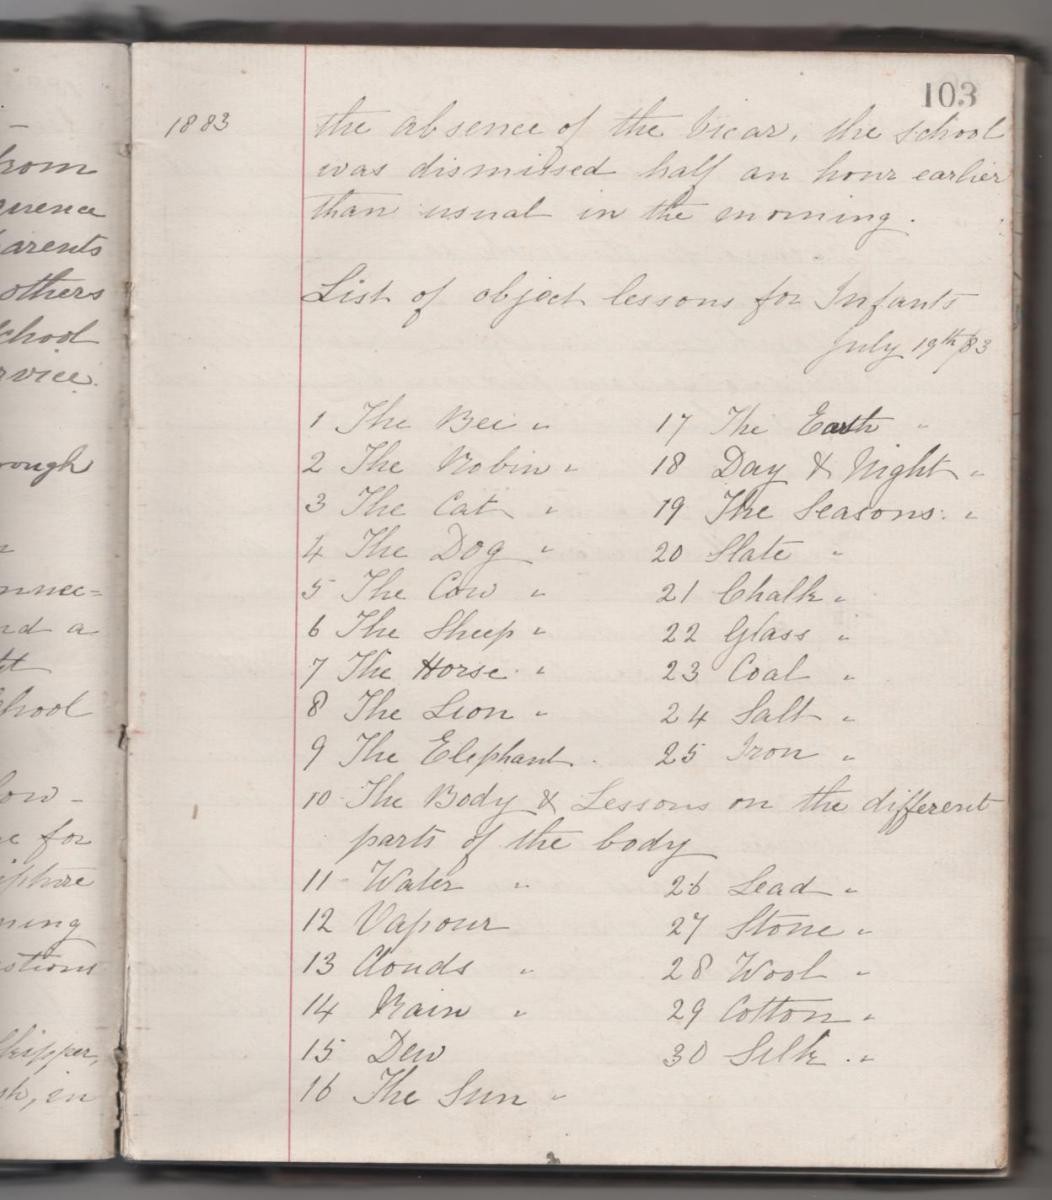 103
1883
the absence of the Vicar, the school
was dismissed half an hour earlier
than usual in the morning.
List of object lessons for Infants
July 19th/83
1 The Bee "
2 The Robin "
3 The Cat "
4 The Dog "
5 The Cow "
6 The Sheep "
7 The Horse "
8 The Lion "
9 The Elephant .
17 The Earth "
18 Day & Night "
19 The Seasons "
20 Slate "
21 Chalk "
22 Glass "
23 Coal "
24 Salt "
25 Iron "
10 The Body & Lessons on the different
parts of the body
11 Water "
12 Vapour
13 Clouds "
14 Rain "
15 Dew
16 The Sun "
26 Lead "
27 Stone "
28 Wool "
29 Cotton "
30 Silk "